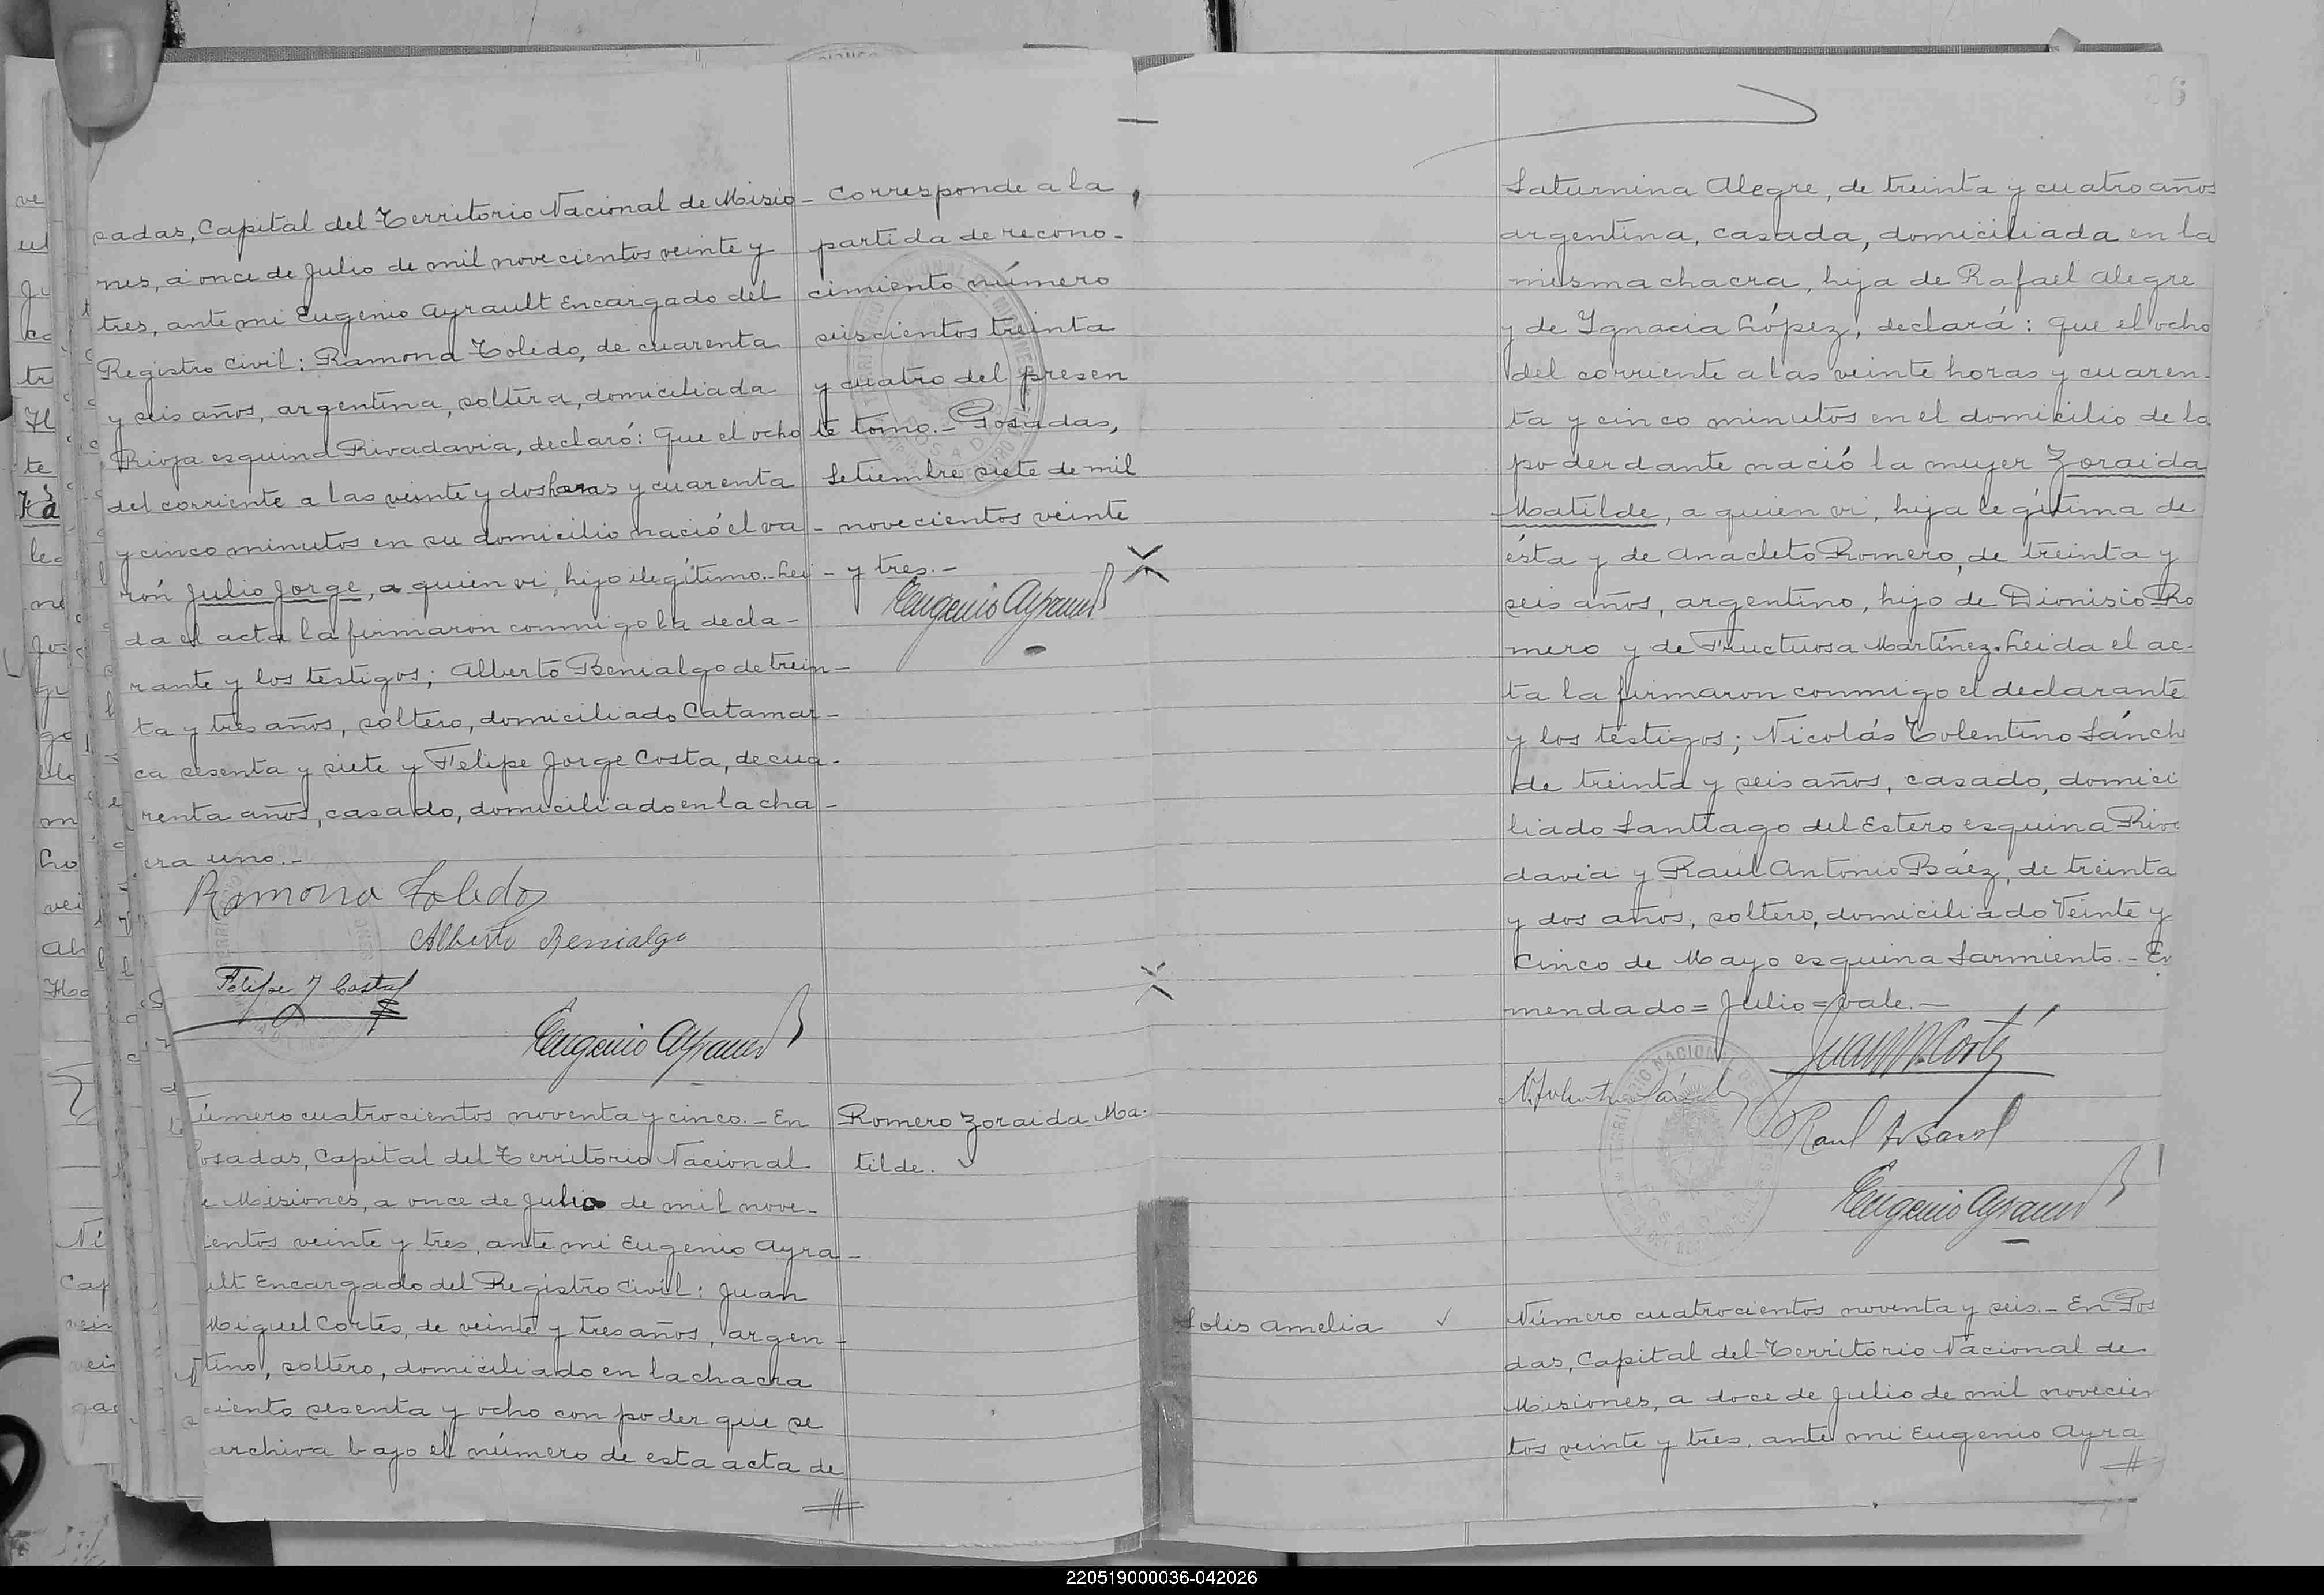 sadas, Capital del Territorio Nacional de Misio-
nes, a once de Julio de mil novecientos veinte y
tres, ante mi Eugenio Ayrault Encargado del
Registro Civil: Ramona Toledo, de cuarenta
y seis años, argentina, soltera, domiciliada
Rioja esquina Rivadavia, declaró: Que el ocho
del corriente a las veinte y dos horas y cuarenta
y cinco minutos en su domicilio nació el va-
rón Julio Jorge, a quien vi, hijo ilegítimo.- Lei-
da el acta la firmaron conmigo la decla-
rante y los testigos; Alberto Benialgo de trein-
ta y tres años, soltero, domiciliado Catamar-
ca sesenta y siete y Felipe Jorge Costa, de cua-
renta años, casado, domiciliado en la cha-
cra uno.-
Ramona Toledo
Alberto Benialgo
Felipe J Costa
Eugenio Ayrault
Corresponde a la
partida de recono-
cimiento número
seiscientos treinta
y cuatro del presen
te tomo.- Posadas,
Setiembre siete de mil
novecientos veinte
y tres.-
Eugenio Ayrault
Número cuatrocientos noventa y cinco.- En
Posadas, Capital del Territorio Nacional
de Misiones, a once de Julio de mil nove-
cientos veinte y tres, ante mi Eugenio Ayra-
ult Encargado del Registro Civil: Juan
Miguel Cortés, de veinte y tres años, argen-
tino, soltero, domiciliado en la chacra
ciento sesenta y ocho con poder que se
archiva bajo el número de esta acta de
Romero Zoraida Ma-
tilde.
Saturnina Alegre, de treinta y cuatro años
argentina, casada, domiciliada en la
misma chacra, hija de Rafael Alegre
y de Ignacia López, declará: Que el ocho
del corriente a las veinte horas y cuaren-
ta y cinco minutos en el domicilio de la
poderdante nació la mujer Zoraida
Matilde, a quien vi, hija legítima de
ésta y de Anacleto Romero, de treinta y
seis años, argentino, hijo de Dionisio Ro
mero y de Fructuosa Martínez. Leida el ac-
ta la firmaron conmigo el declarante
y los testigos; Nicolás Tolentino Sánch
de treinta y seis años, casado, domici
liado Santiago del Estero esquina Riva
davia y Raúl Antonio Báez, de treinta
y dos años, soltero, domiciliado Veinte y
Cinco de Mayo esquina Sarmiento.- En
mendado=Julio=vale.-
Juan M. Cortés
N. Tolentino Sánchez
Raul A Baez
Eugenio Ayrault
Solis Amelia
Número cuatrocientos noventa y seis.- En Pos
das, Capital del Territorio Nacional de
Misiones, a doce de Julio de mil novecien
tos veinte y tres, ante mi Eugenio Ayra
220519000036-042026